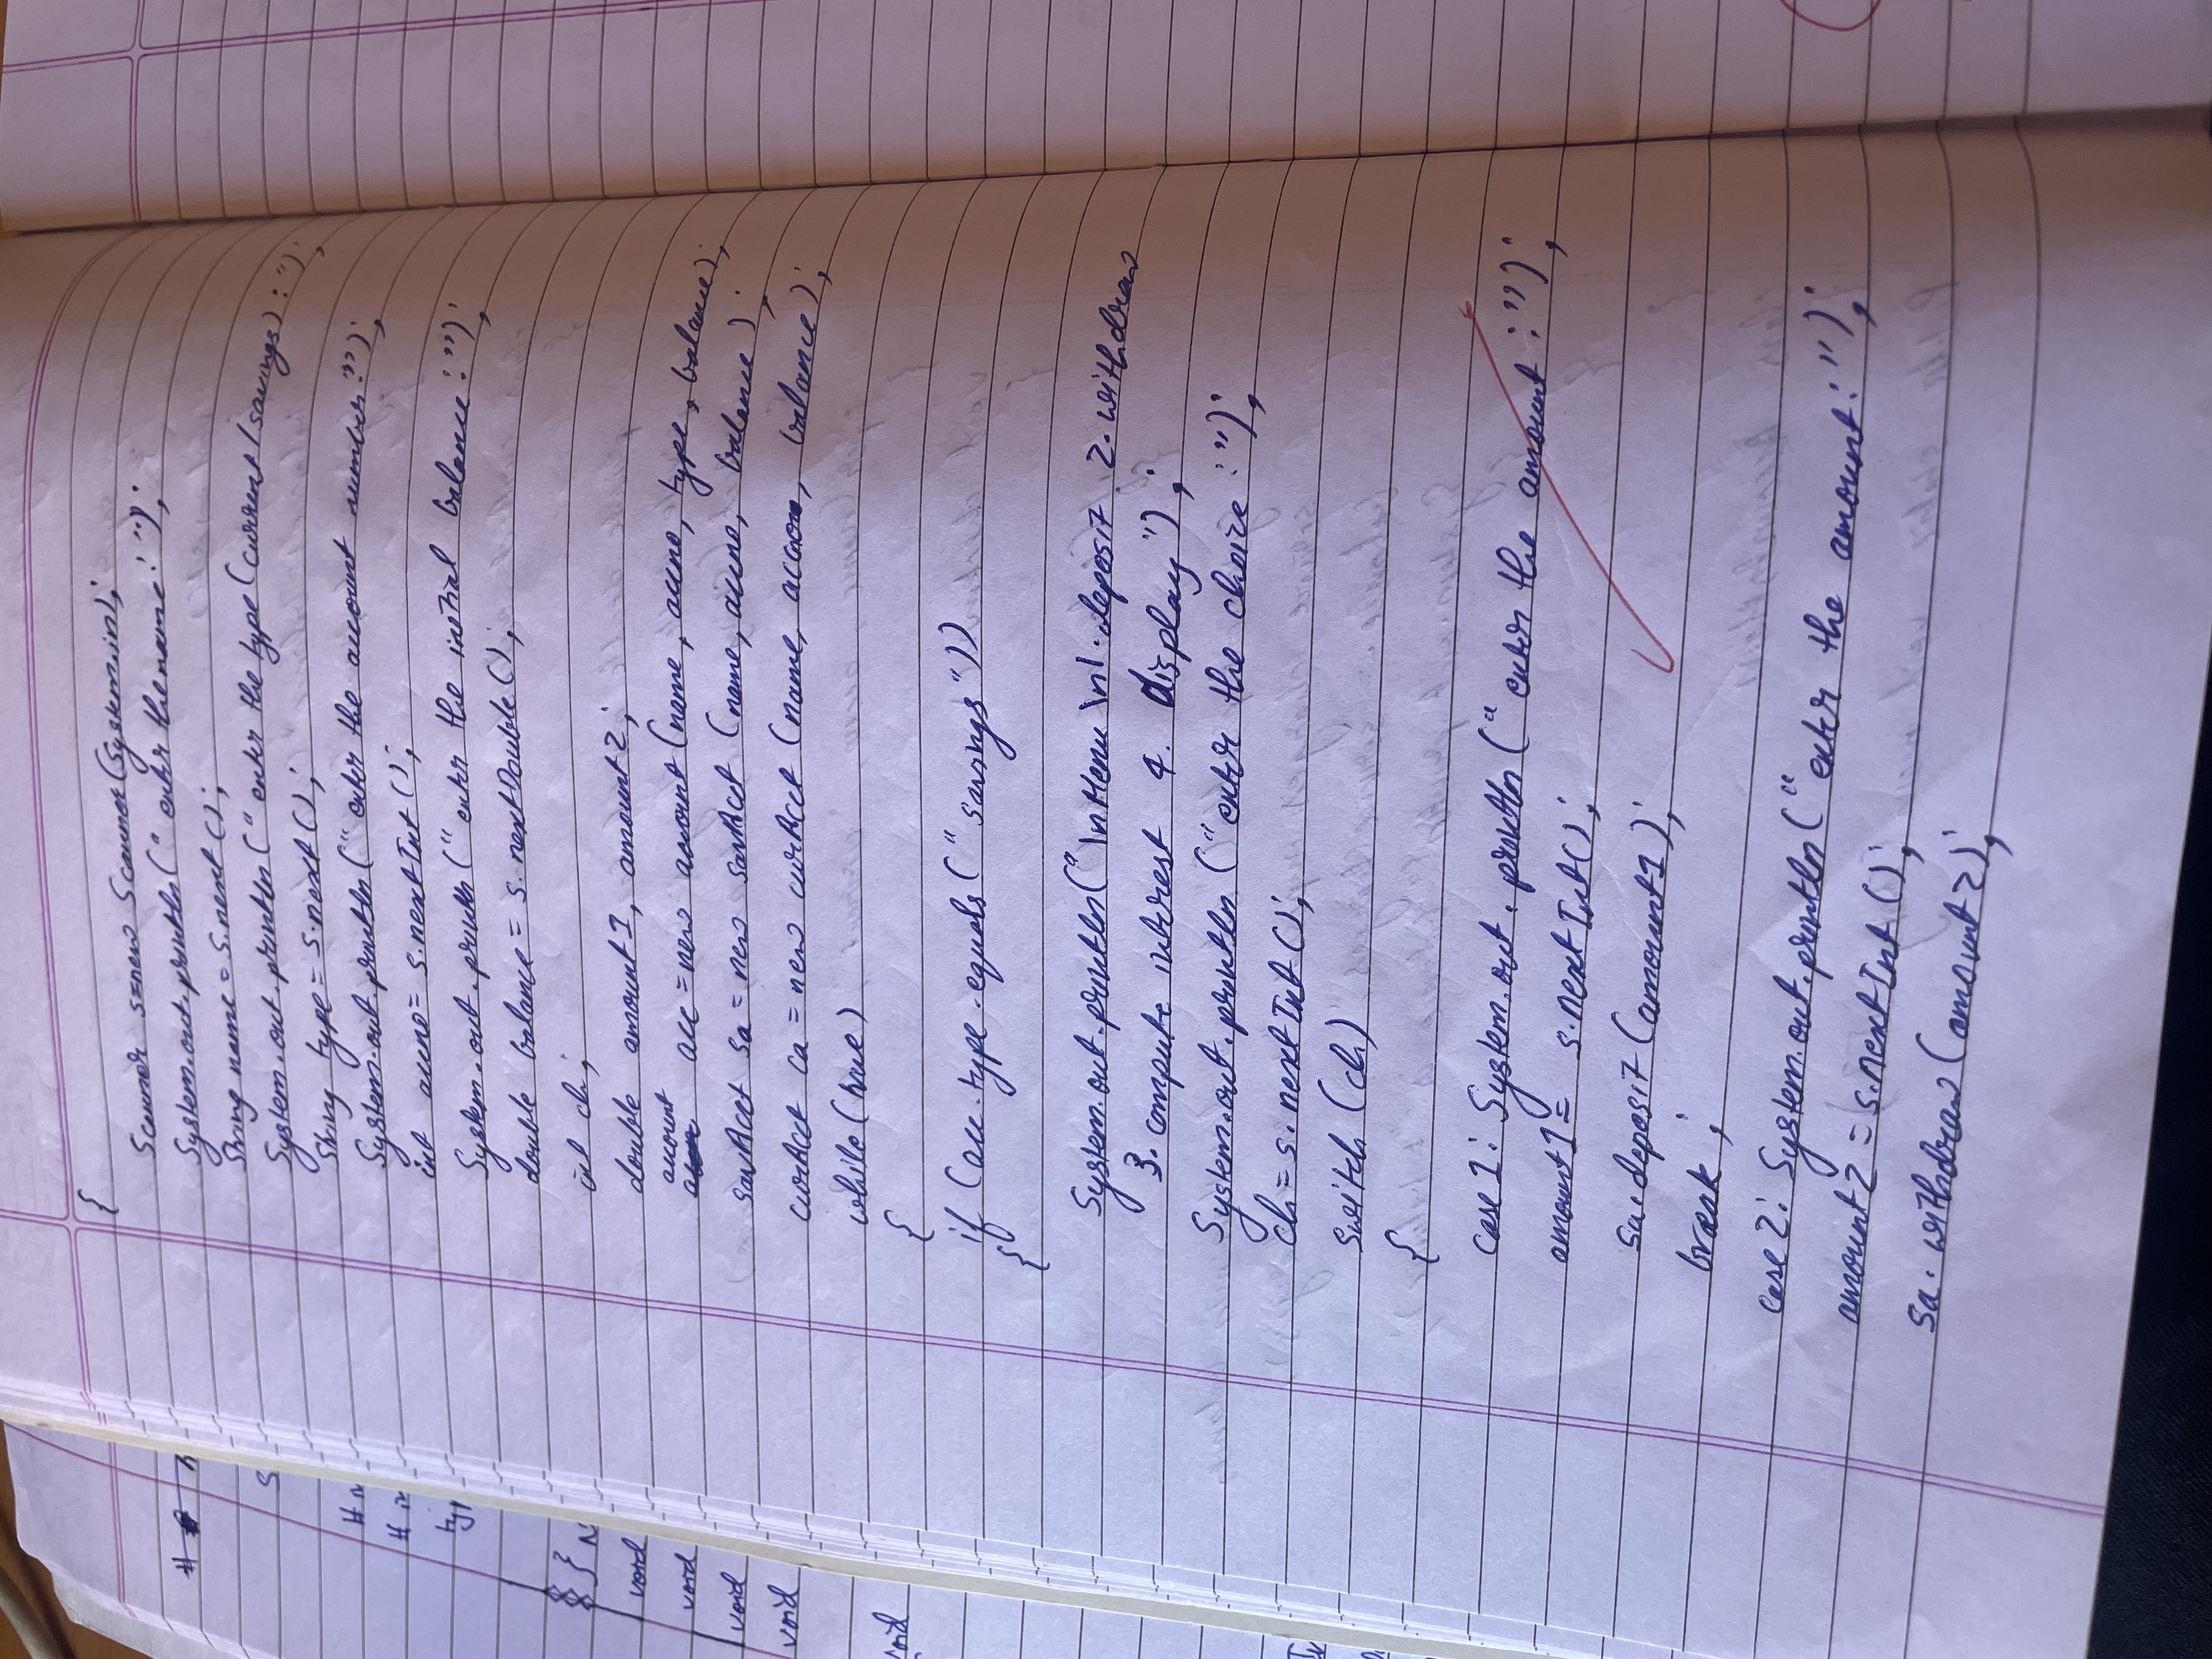 {
Scanner s=new Scanner(System.in);
System.out.println(" enter the name: ");
String name = s.next();
System.out.println(" enter the type (current / savings) : ");
String type = s.next();
System.out.println(" enter the account number: ");
int accno= s.nextInt();
System.out.println("enter the initial balance: ");
double balance = s.nextDouble();
int ch;
double amount1, amount2;
account acc = new account (name, accno, type, balance);
savAcct sa = new savAcct (name, accno, balance);
curAcct ca = new curAcct (name, accno, balance);
while (true)
{
if (acc.type.equals("savings"))
{
System.out.println("\nMenu \n1.deposit 2.withdraw
3. compute interest 4. display");
System.out.println ("enter the choice :");
ch = s.nextInt();
switch (ch)
{
case 1: System.out.println("enter the amount :");
amount1 = s.nextInt();
sa.deposit (amount1);
break ;
case 2: System.out.println("enter the amount: ");
amount2 = s.nextInt ();
sa. withdraw (amount2);
#
S
#
#
typ
}
void
void
void
void
void